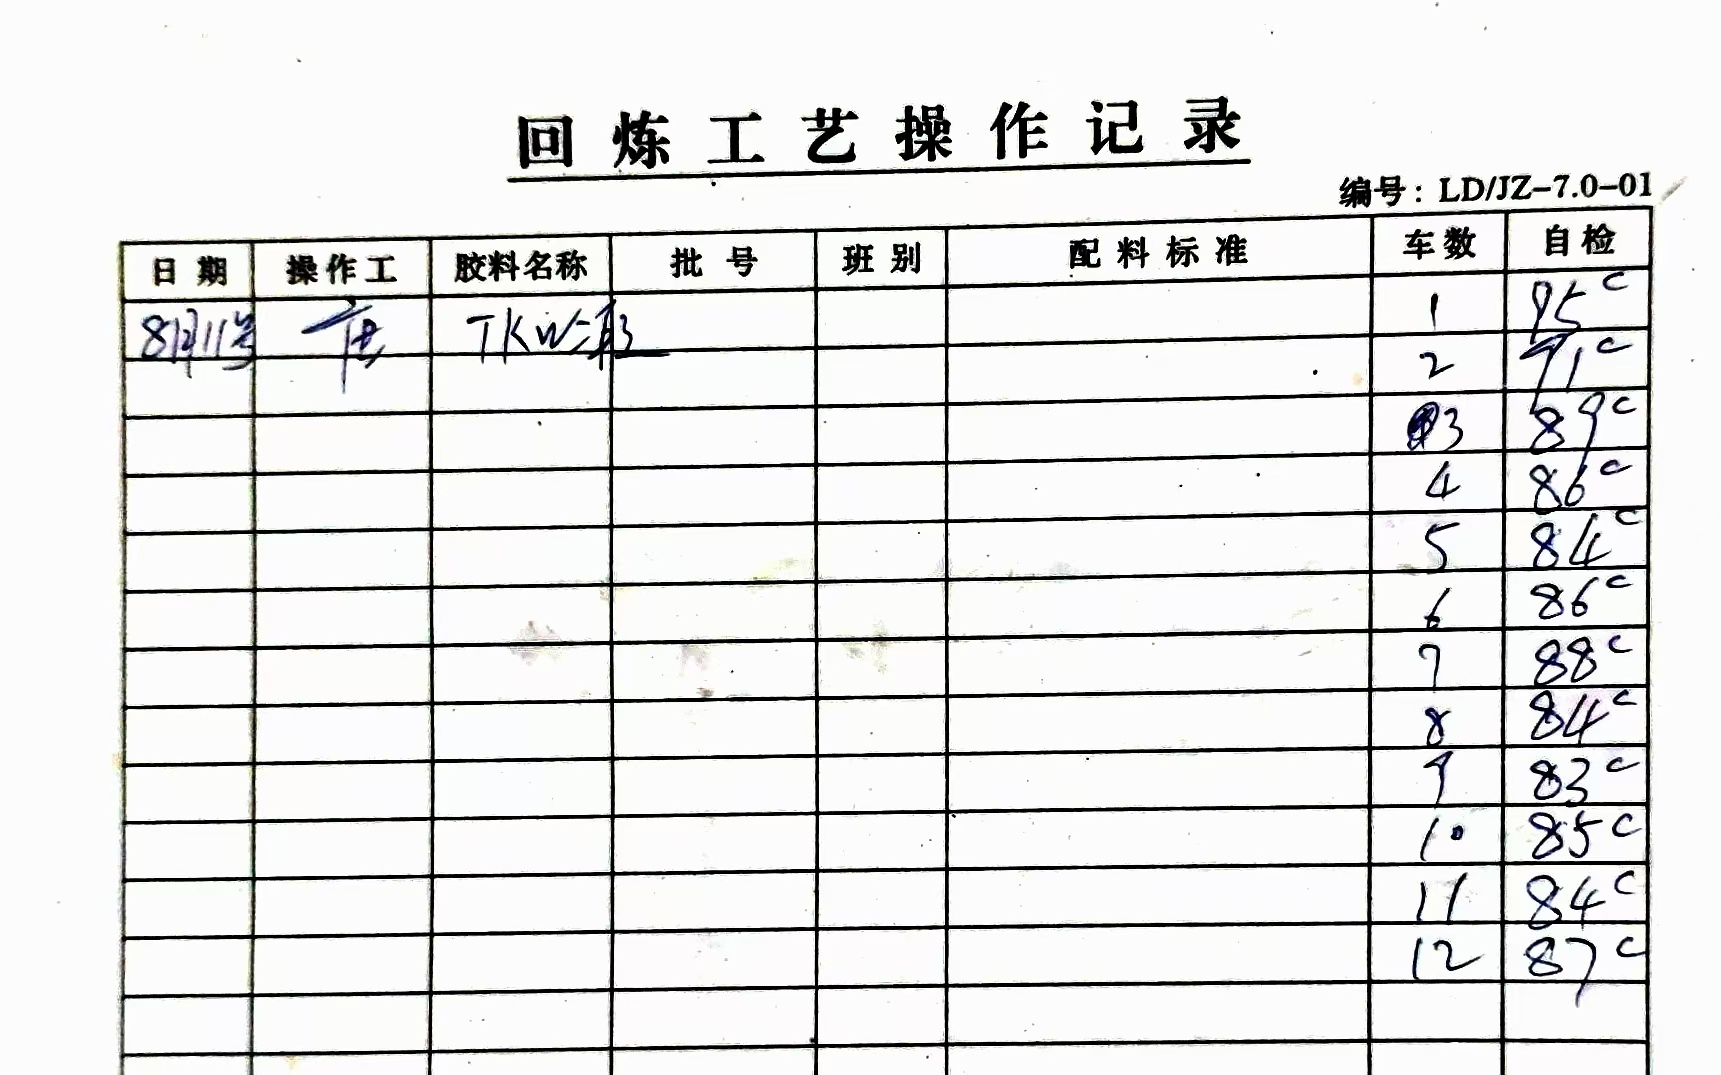 回炼工艺操作记录
编号：LD/JZ-7.0-01
日期 操作工 胶料名称 批号 班别 配料标准 车数 自检
8月11号 TKW 1 95c
2 91c
3 89c
4 86c
5 84c
6 86c
7 88c
8 84c
9 83c
10 85c
11 84c
12 87c